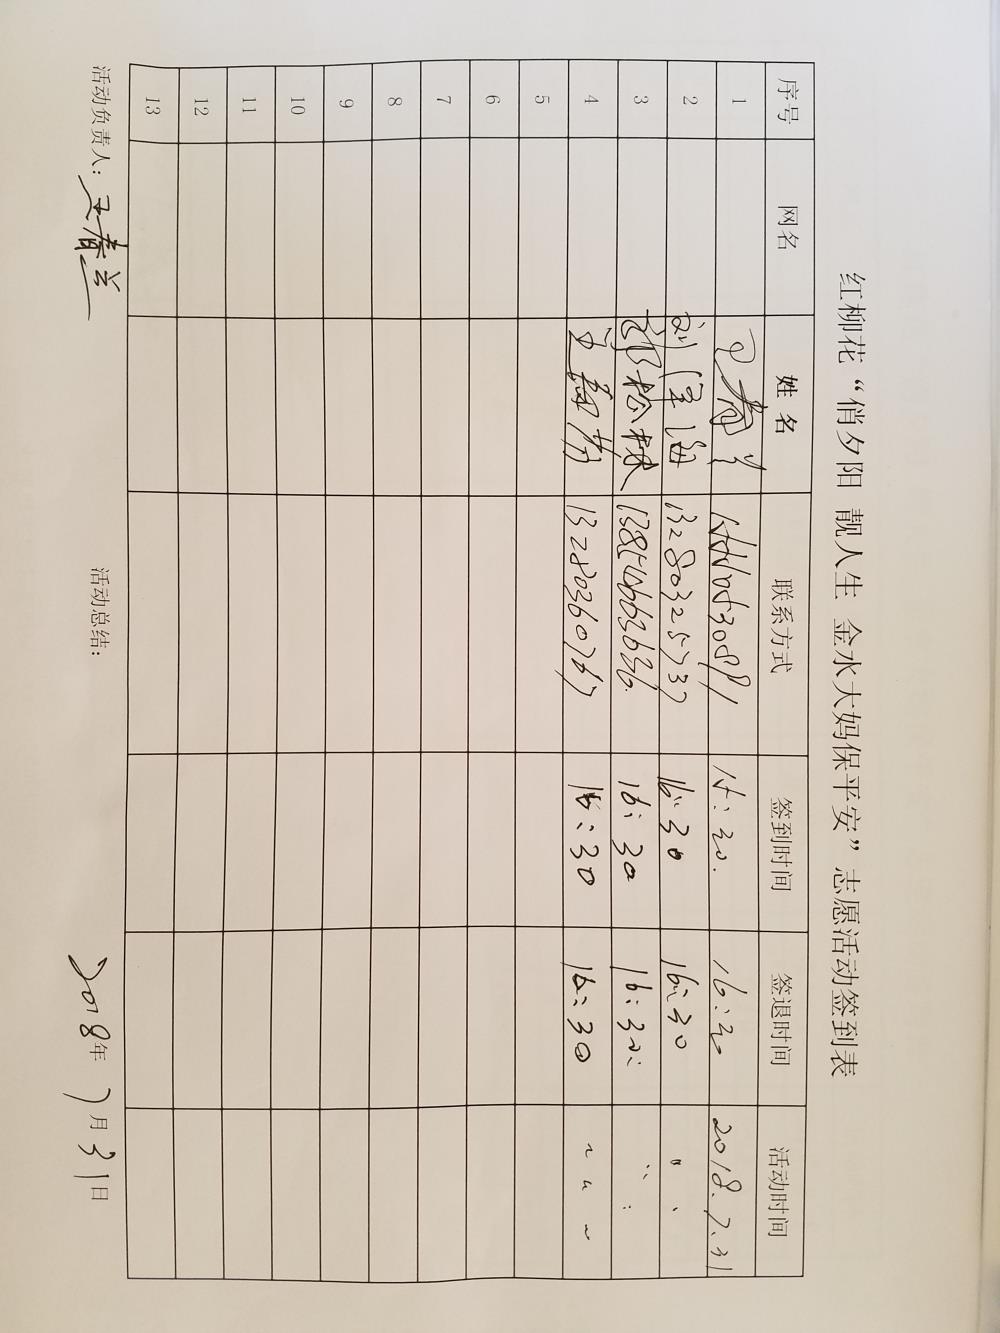 红柳花“俏夕阳 靓人生 金水大妈保平安”志愿活动签到表
序号 网名 姓名 联系方式 签到时间 签退时间 活动时间
1 15:30. 16:30 2018.7.31
2 刘泽海 13280325737 16:30 16:30 〃
3 16:30 16:30 〃
4 13280360767 16:30 〃
5
6
7
8
9
10
11
12
13
活动负责人：王春兰 活动总结： 2018年7月31日